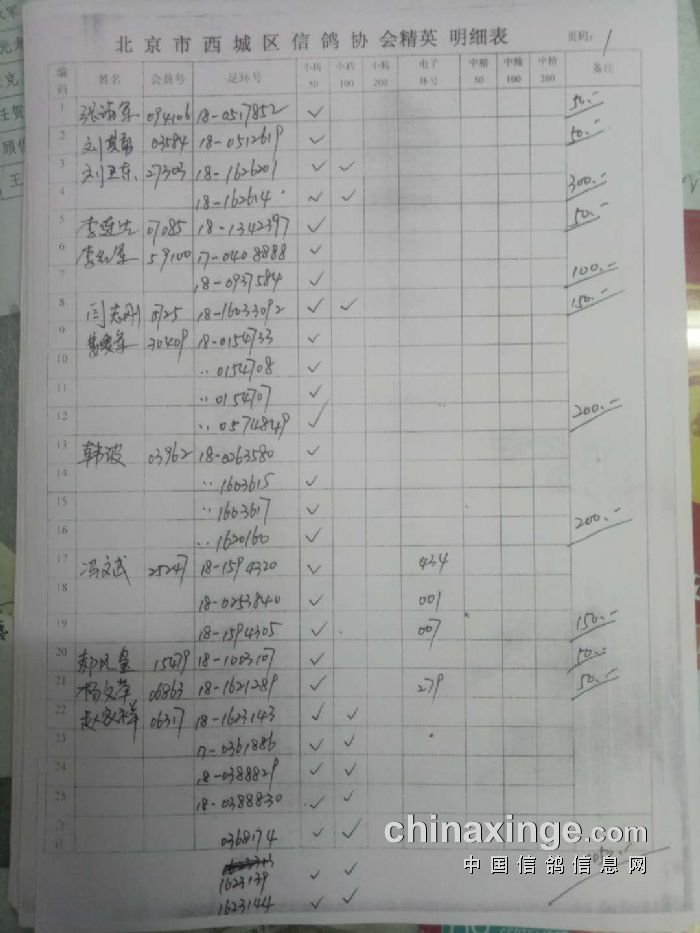 北京市西城区信鸽协会精英 明细表
页码: 1
编码 姓名 会员号 足环号 小精50 小精100 小精200 电子环号 中精50 中精100 中精200 备注
1 094106 18-0517852 ✓ 50.-
2 03584 18-0512619 ✓ 50.-
3 刘卫东 27303 18-1626201 ✓ ✓
4 18-162614 ✓ ✓ 300.-
5 07085 18-1342397 ✓ 50.-
6 59100 17-0408888 ✓
7 18-0937584 ✓ 100.-
8 闫志刚 0725 18-16033092 ✓ ✓ 150.-
9 30409 18-0154733 ✓
10 ·· 0154708 ✓
11 ·· 0154707 ✓
12 ·· 0574849 ✓ 200.-
13 韩波 03962 18-0263580 ✓
14 ·· 1603615 ✓
15 ·· 1603617 ✓
16 ·· 1620160 ✓ 200.-
17 冯文武 25247 18-1594320 ✓ 434
18 18-0253840 ✓ 001
19 18-1594305 ✓ 007 150.-
20 郝凤皇 15479 18-1003107 ✓ 50.-
21 杨文革 06863 18-1621289 ✓ 279 50.-
22 06317 18-1623143 ✓ ✓
23 17-0361886 ✓ ✓
24 18-0388829 ✓ ✓
25 18-0388830 ✓ ✓
合计 0368174 ✓ ✓
1623139 ✓ ✓
1623144 ✓ ✓
chinaxinge.com
中国信鸽信息网